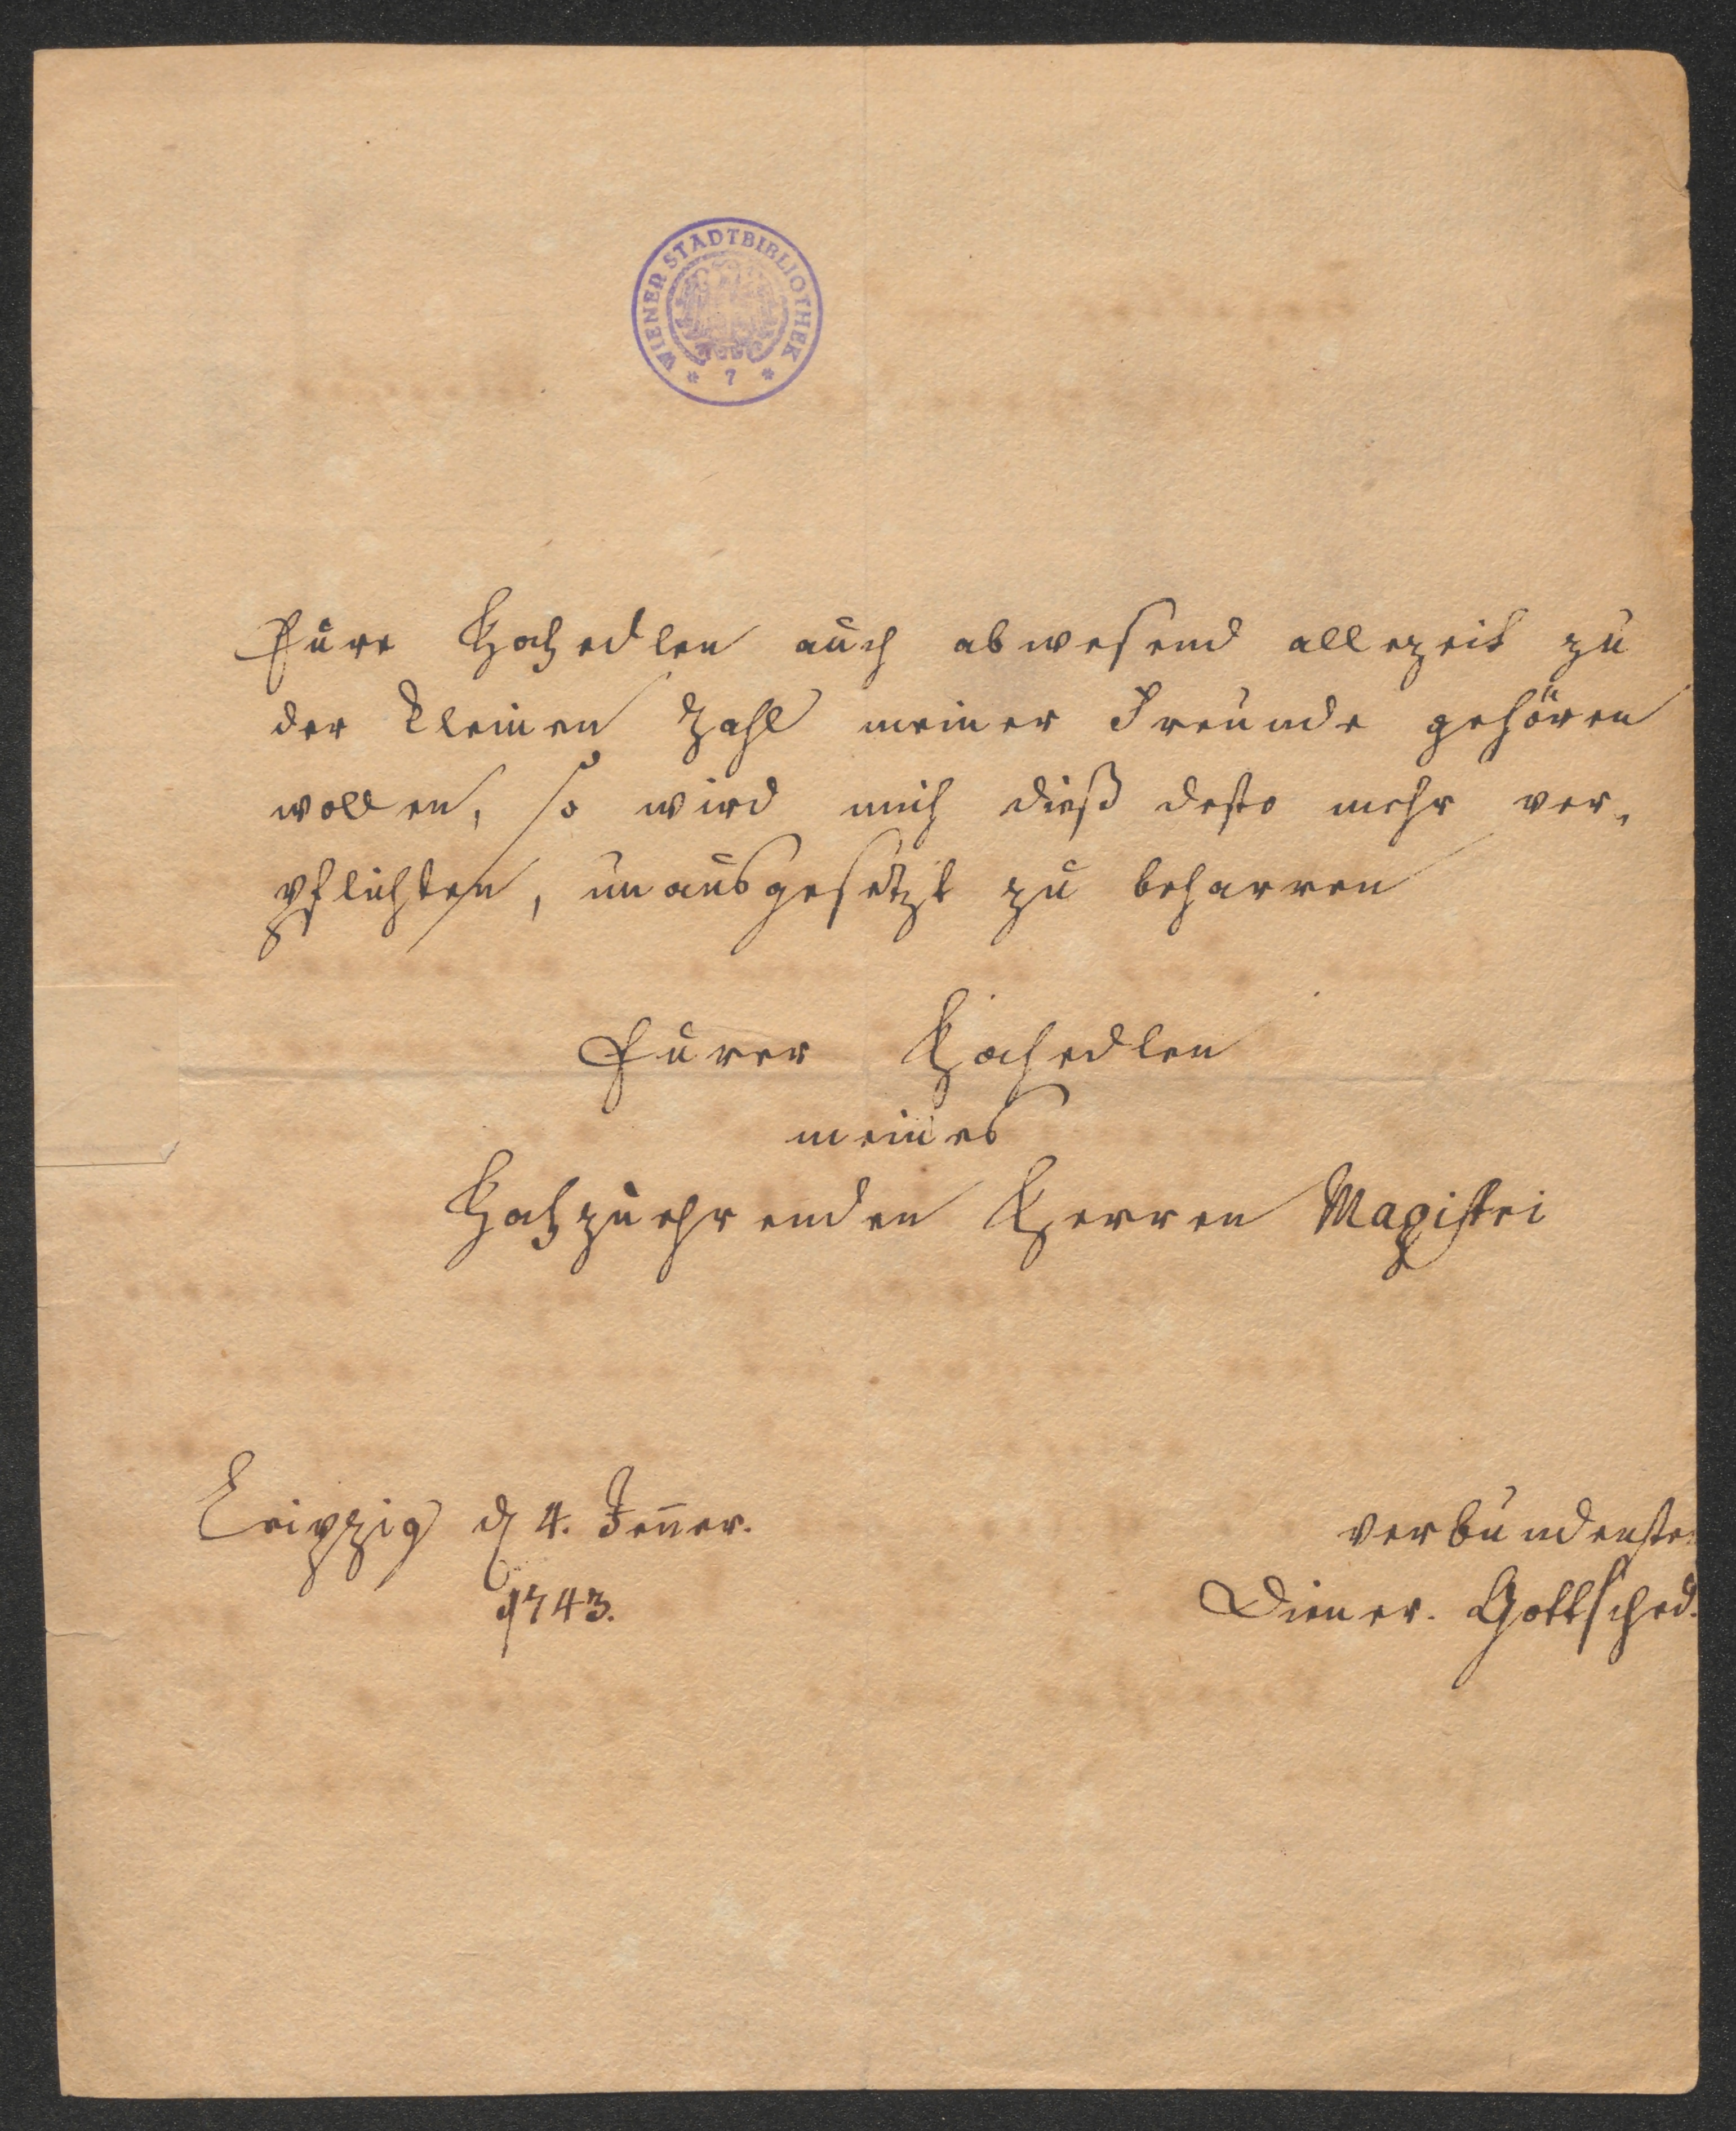 WIENER STADTBIBLIOTHEK
* 7 *
Eure Hochedlen auch abwesend allezeit zu
der kleinen Zahl meiner Freunde gehören
wollen, so wird mich dieß desto mehr ver-
pflichten, unausgesetzt zu beharren
Eurer Hochedlen
meines
Hochzuehrenden Herren Magistri
Leipzig d 4. Jen̄er.
1743.
verbundenster
Diener. Gottsched.